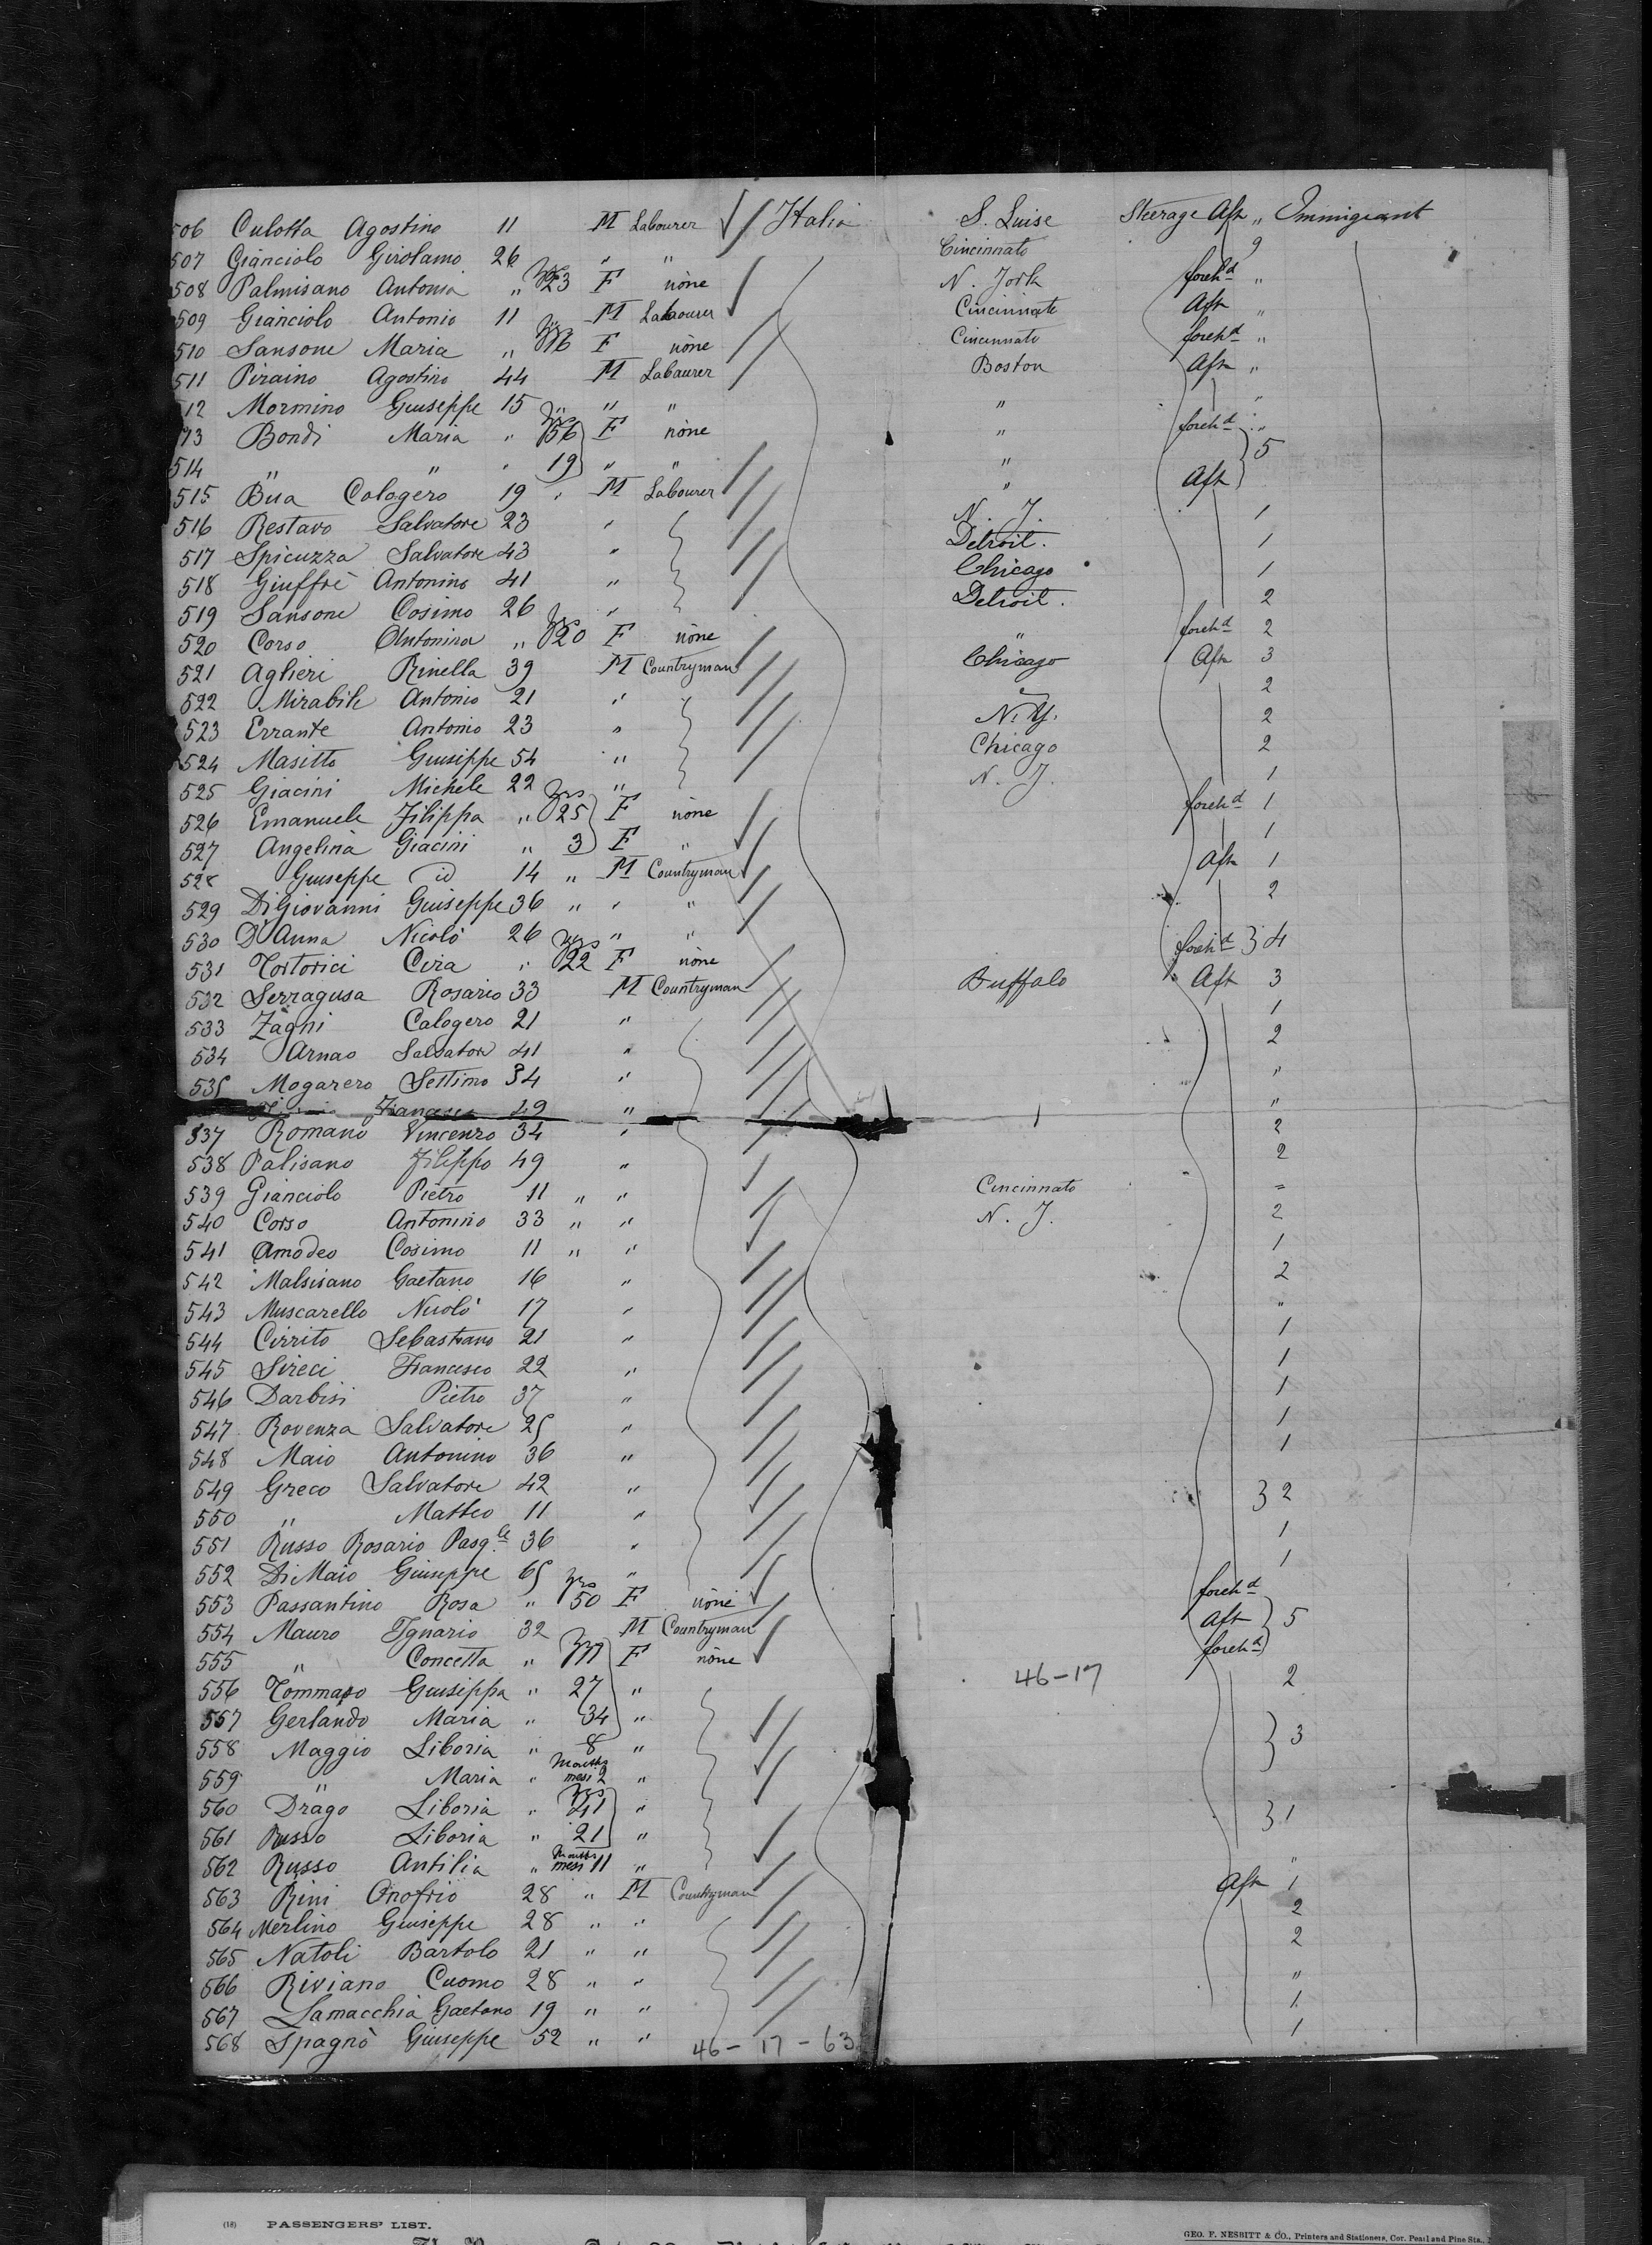 506 Culotta Agostino 11 M Labourer Italia S. Luise Steerage Aft „ Emmigrant
507 Gianciolo Girolamo 26 „ „ Cincinnato 9
508 Palmisano Antonia „ yrs 23 F none N. York foreh^d „
509 Gianciolo Antonio 11 M Labourer Cincinnate Aft „
510 Sansone Maria „ yrs 16 F none Cincinnato foreh^d „
511 Piraino Agostino 44 M Labaurer Boston Aft „
512 Mormino Giuseppe 15 „ „ „ „ „
513 Bondi Maria „ yrs 56 F none „ foreh^d „
514 „ „ „ 19 „ „ „ 5
515 Bua Calogero 19 „ M Labourer „ Aft
516 Restavo Salvatore 23 „ N. J. 1
517 Spicuzza Salvatore 43 „ Detroit. 1
518 Giuffrè Antonino 41 „ Chicago 1
519 Sansone Cosimo 26 „ Detroit. 2
520 Corso Antonina „ yrs 20 F none „ foreh^d 2
521 Aglieri Rinella 39 M Countryman Chicago Aft 3
522 Mirabile Antonio 21 „ 2
523 Errante Antonio 23 „ N. Y. 2
524 Masitto Giuseppe 54 „ Chicago 2
525 Giacini Michele 22 „ N. J. 1
526 Emanuele Filippa „ yrs 25 F none foreh^d 1
527 Angelina Giacini „ 3 F „ 1
528 Giuseppe id 14 „ M Countryman Aft 1
529 DiGiovanni Giuseppe 36 „ „ „ 2
530 D'Anna Nicolò 26 „ „
531 Tortorici Cira „ yrs 22 F none foreh^d 3 4
532 Serragusa Rosario 33 M Countryman Buffalo Aft 3
533 Zagni Calogero 21 „ 1
534 Arnao Salvatore 41 „ 2
535 Mogarero Settimo 34 „ „
Francesco 49 „ „
537 Romano Vincenzo 34 „ 2
538 Palisano Filippo 49 „ 2
539 Gianciolo Pietro 11 „ „ Cincinnato =
540 Corso Antonino 33 „ „ N. J. 2
541 Amodeo Cosimo 11 „ „ 1
542 Malsisano Gaetano 16 „ 2
543 Muscarello Nicolò 17 „ „
544 Cirrito Sebastiano 21 „ 1
545 Sireci Francesco 22 „ 1
546 Darbisi Pietro 37 „ 1
547 Rovenza Salvatore 25 „ 1
548 Maio Antonino 36 „ 1
549 Greco Salvatore 42 „ 3 2
550 „ Matteo 11 „
551 Russo Rosario Pasq^le 36 „ 1
552 DiMaio Giuseppe 65 „ 1
553 Passantino Rosa „ yrs 50 F none foreh^d
554 Mauro Ignazio 32 M Countryman Aft 5
555 „ Concetta „ F none foreh^d
556 Tommaso Giuseppa „ 27 „ 46-17 2
557 Gerlando Maria „ 34 „
558 Maggio Liboria „ 8 „ 3
559 „ Maria „ Months mesi 2 „
560 Drago Liboria „ yrs 41 „
561 Russo Liboria „ 21 „ 3 1
562 Russo Antilia „ Months mesi 11 „ „
563 Rini Onofrio 28 „ M Countryman Aft 1
564 Merlino Giuseppe 28 „ „ 2
565 Natoli Bartolo 21 „ „ 2
566 Riviano Cuomo 28 „ „ „
567 Lamacchia Gaetano 19 „ „ 1
568 Spagnò Giuseppe 52 „ „ 1
46-17-63
(18) PASSENGERS' LIST.
GEO. F. NESBITT & CO., Printers and Stationers, Cor. Pearl and Pine Sts.,